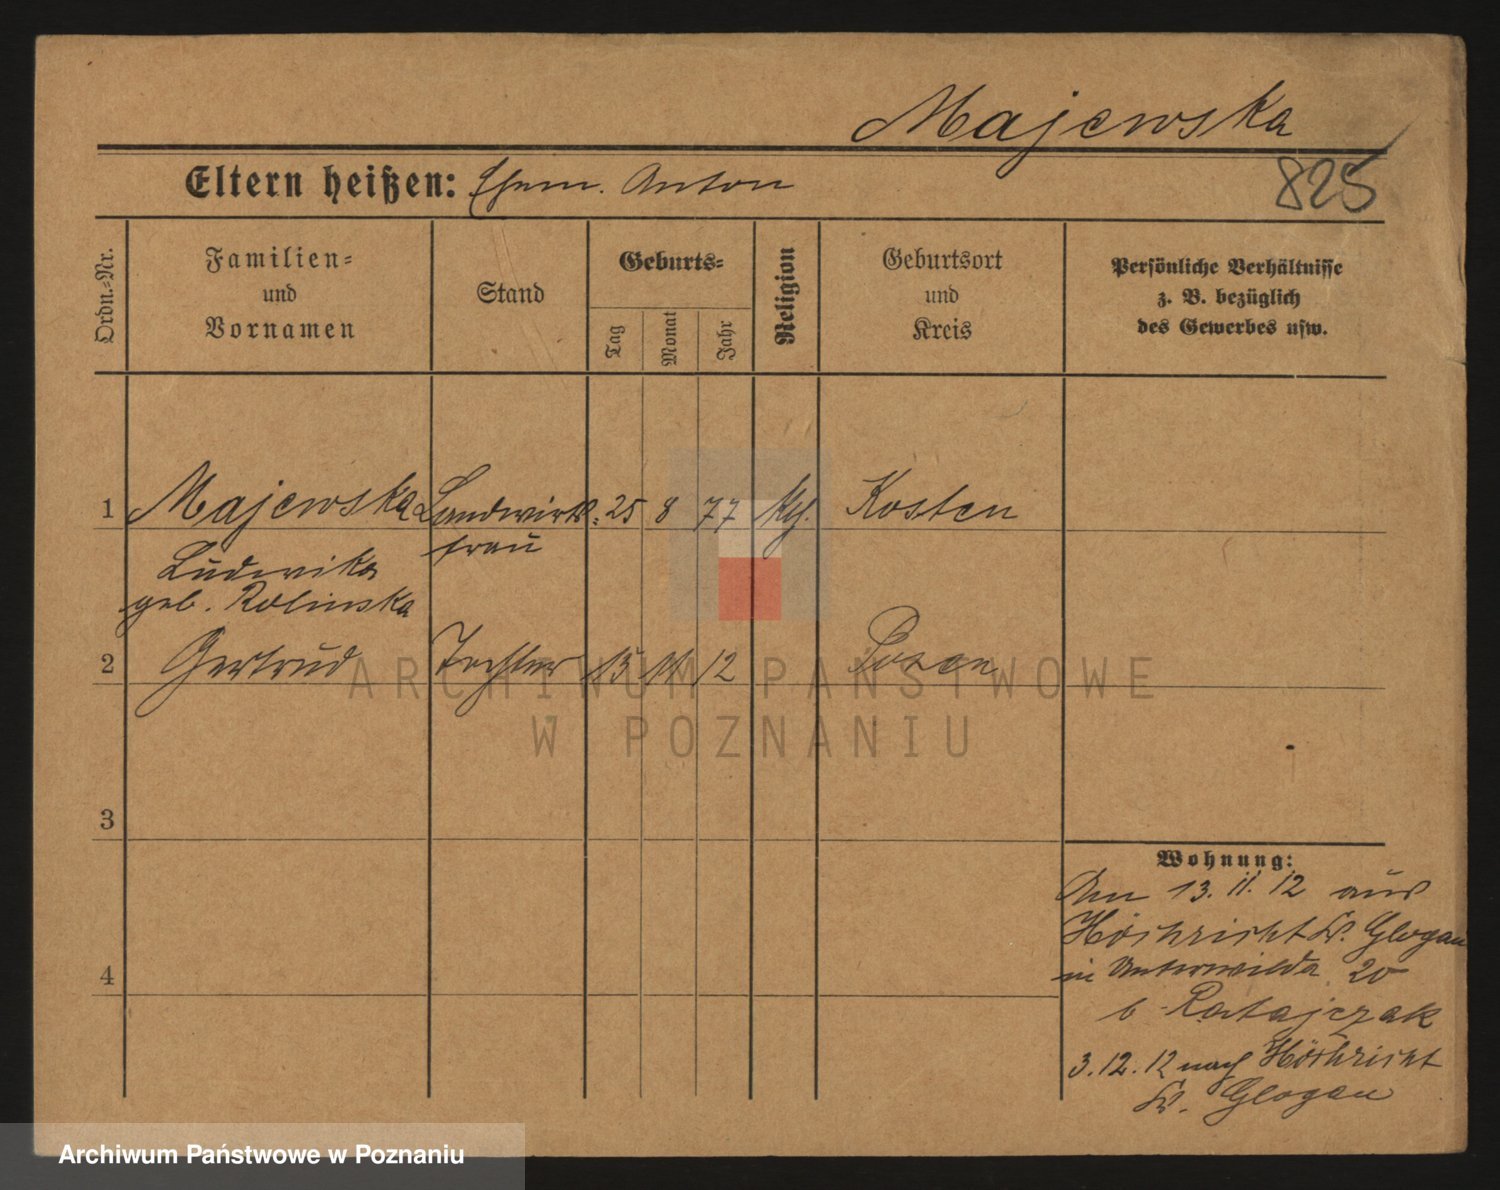 Majewska
825
Eltern heißen: Ehem. Anton
Ordn.-Nr.
Familien-
und
Vornamen
Stand
Geburts-
Tag
Monat
Jahr
Religion
Geburtsort
und
Kreis
Persönliche Verhältnisse
z. B. bezüglich
des Gewerbes usw.
1 Majewska Landwirts- 25 8 77 Kosten
frau
Ludwika
geb. Rolinska
2 Gertrud Tochter 15 11 12 Posen
3
4
Wohnung:
Am 13. 11. 12 aus
Höckricht Kr. Glogau
in Unterwilda 20
b Ratajczak
3. 12. 12 nach Höckricht
Kr. Glogau
ARCHIWUM PAŃSTWOWE
W POZNANIU
Archiwum Państwowe w Poznaniu